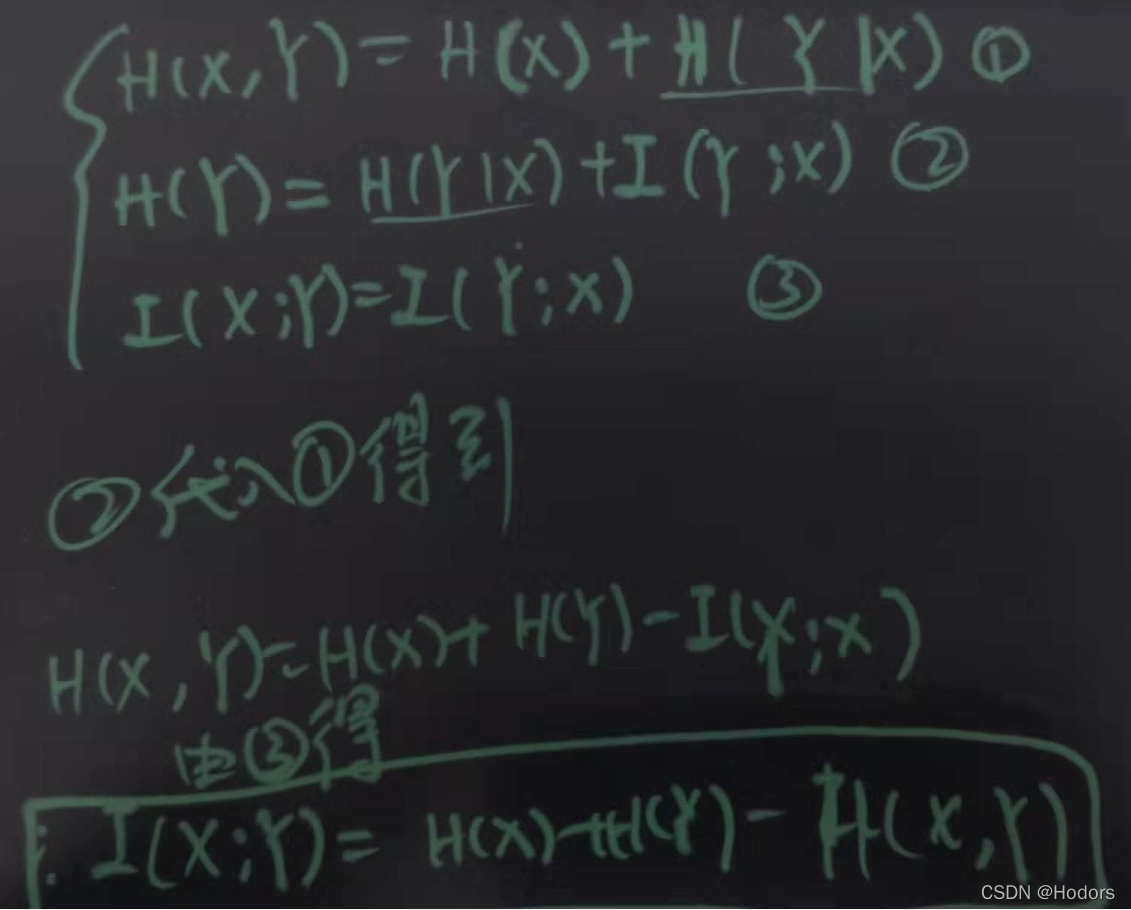 H(X,Y)=H(X)+H(Y|X) ①
H(Y)=H(Y|X)+I(Y;X) ②
I(X;Y)=I(Y;X) ③
②代入①得到
H(X,Y)=H(X)+H(Y)-I(Y;X)
由③得
∴ I(X;Y)=H(X)+H(Y)-H(X,Y)
CSDN @Hodors